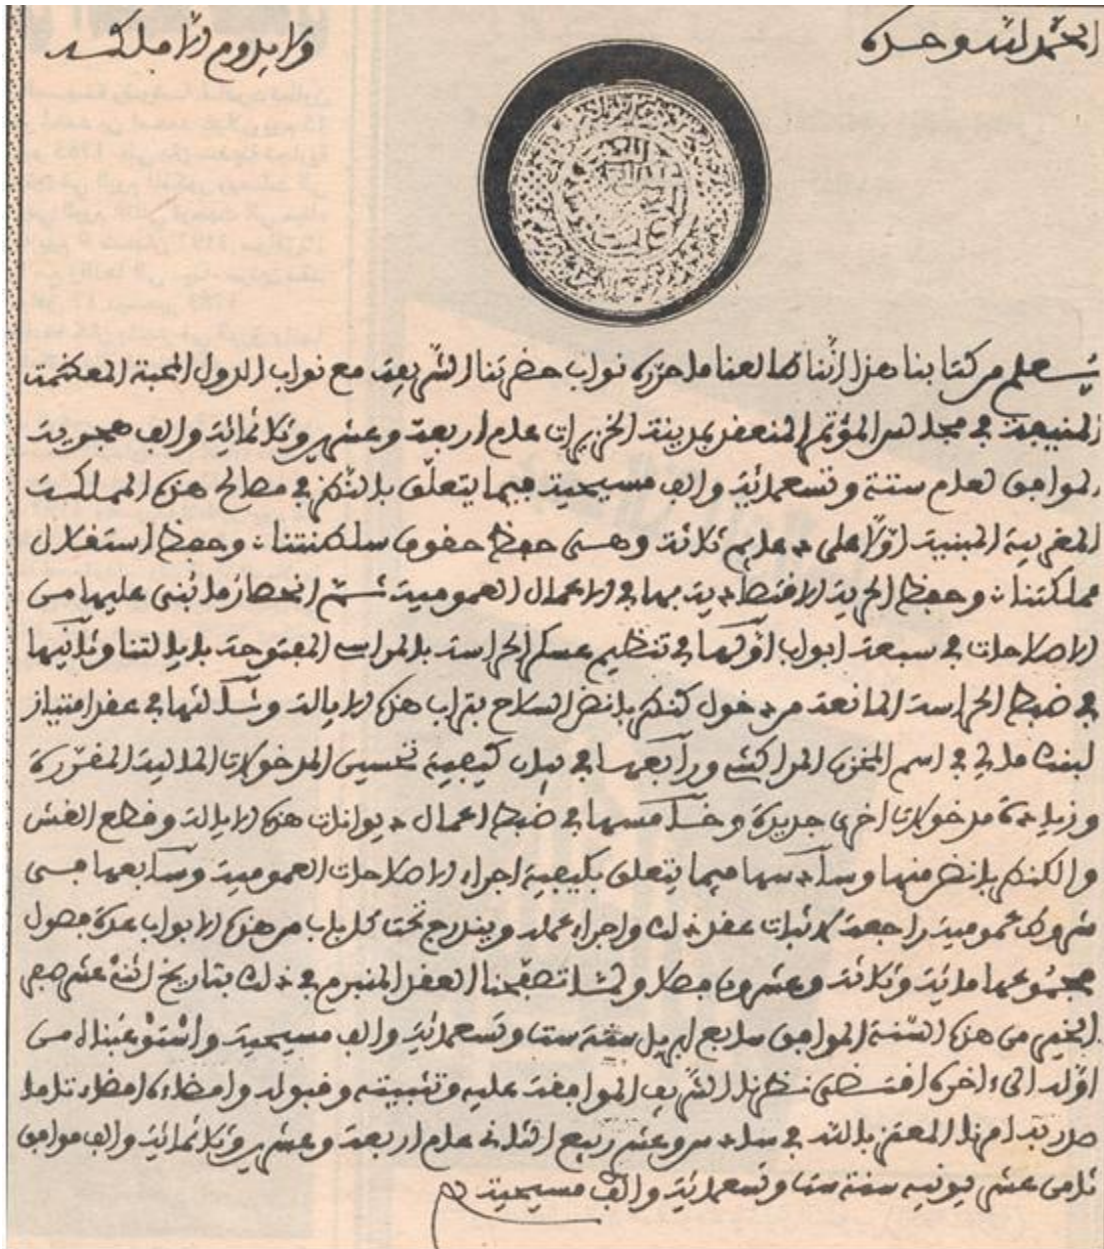 الحمد لله وحده
ولا يدوم إلا ملكه
يعلم من كتابنا هذا أننا طالعنا ما حرره نواب حضرتنا الشريفة مع نواب الدول المحبة المعظمة
المنيعة في مجلس المؤتمر المنعقد بمدينة الخزيرات عام أربعة وعشرين وثلاثمائة وألف هجرية
الموافق لعام ستة وتسعمائة وألف مسيحية فيما يتعلق بالنظر في مصالح هذه المملكة
المغربية المبنية أولا على دعايم ثلاثة وهي حفظ حقوق سلطنتنا وحفظ استقلال
مملكتنا وحفظ الحرية الاقتصادية بها في الأعمال العمومية ثم انحصار ما انبنى عليها من
الإصلاحات في سبعة أبواب أولها في تنظيم عسكر الحراسة بالمراسي المفتوحة بإيالتنا وثانيها
في ضبط الحراسة المانعة من دخول كنطربانض السلاح بتراب هذه الإيالة وثالثها في عقد امتياز
لبنك مالي في اسم المخزن المراكشي ورابعها في بيان كيفية تحسين المدخولات المالية المقررة
وزيادة مدخولات أخرى جديدة وخامسها في ضبط أعمال ديوانات هذه الإيالة وقطع الغش
والكنطربانض منها وسادسها فيما يتعلق بكيفية إجراء الإصلاحات العمومية وسابعها في
شروط عمومية راجعة لإثبات عقد ذلك وإجراء عمله ويندرج تحت كل باب من هذه الأبواب عدة فصول
مجموعها مائة وثلاثة وعشرون فصلا ولما تصفحنا العقد المنبرم في ذلك بتاريخ اثني عشر صفر
الخير من هذه السنة الموافق سابع ابريل سنة ست وتسعمائة وألف مسيحية واستوعبناه من
أوله إلى آخره اقتضى نظرنا الشريف الموافقة عليه وتثبيته وقبوله وإمضاءه إمضاء تاما
صدر به أمرنا المعتز بالله في سادس وعشري ربيع الثاني عام أربعة وعشرين وثلاثمائة وألف موافق
ثامن عشر يونيه سنة ست وتسعمائة وألف مسيحية